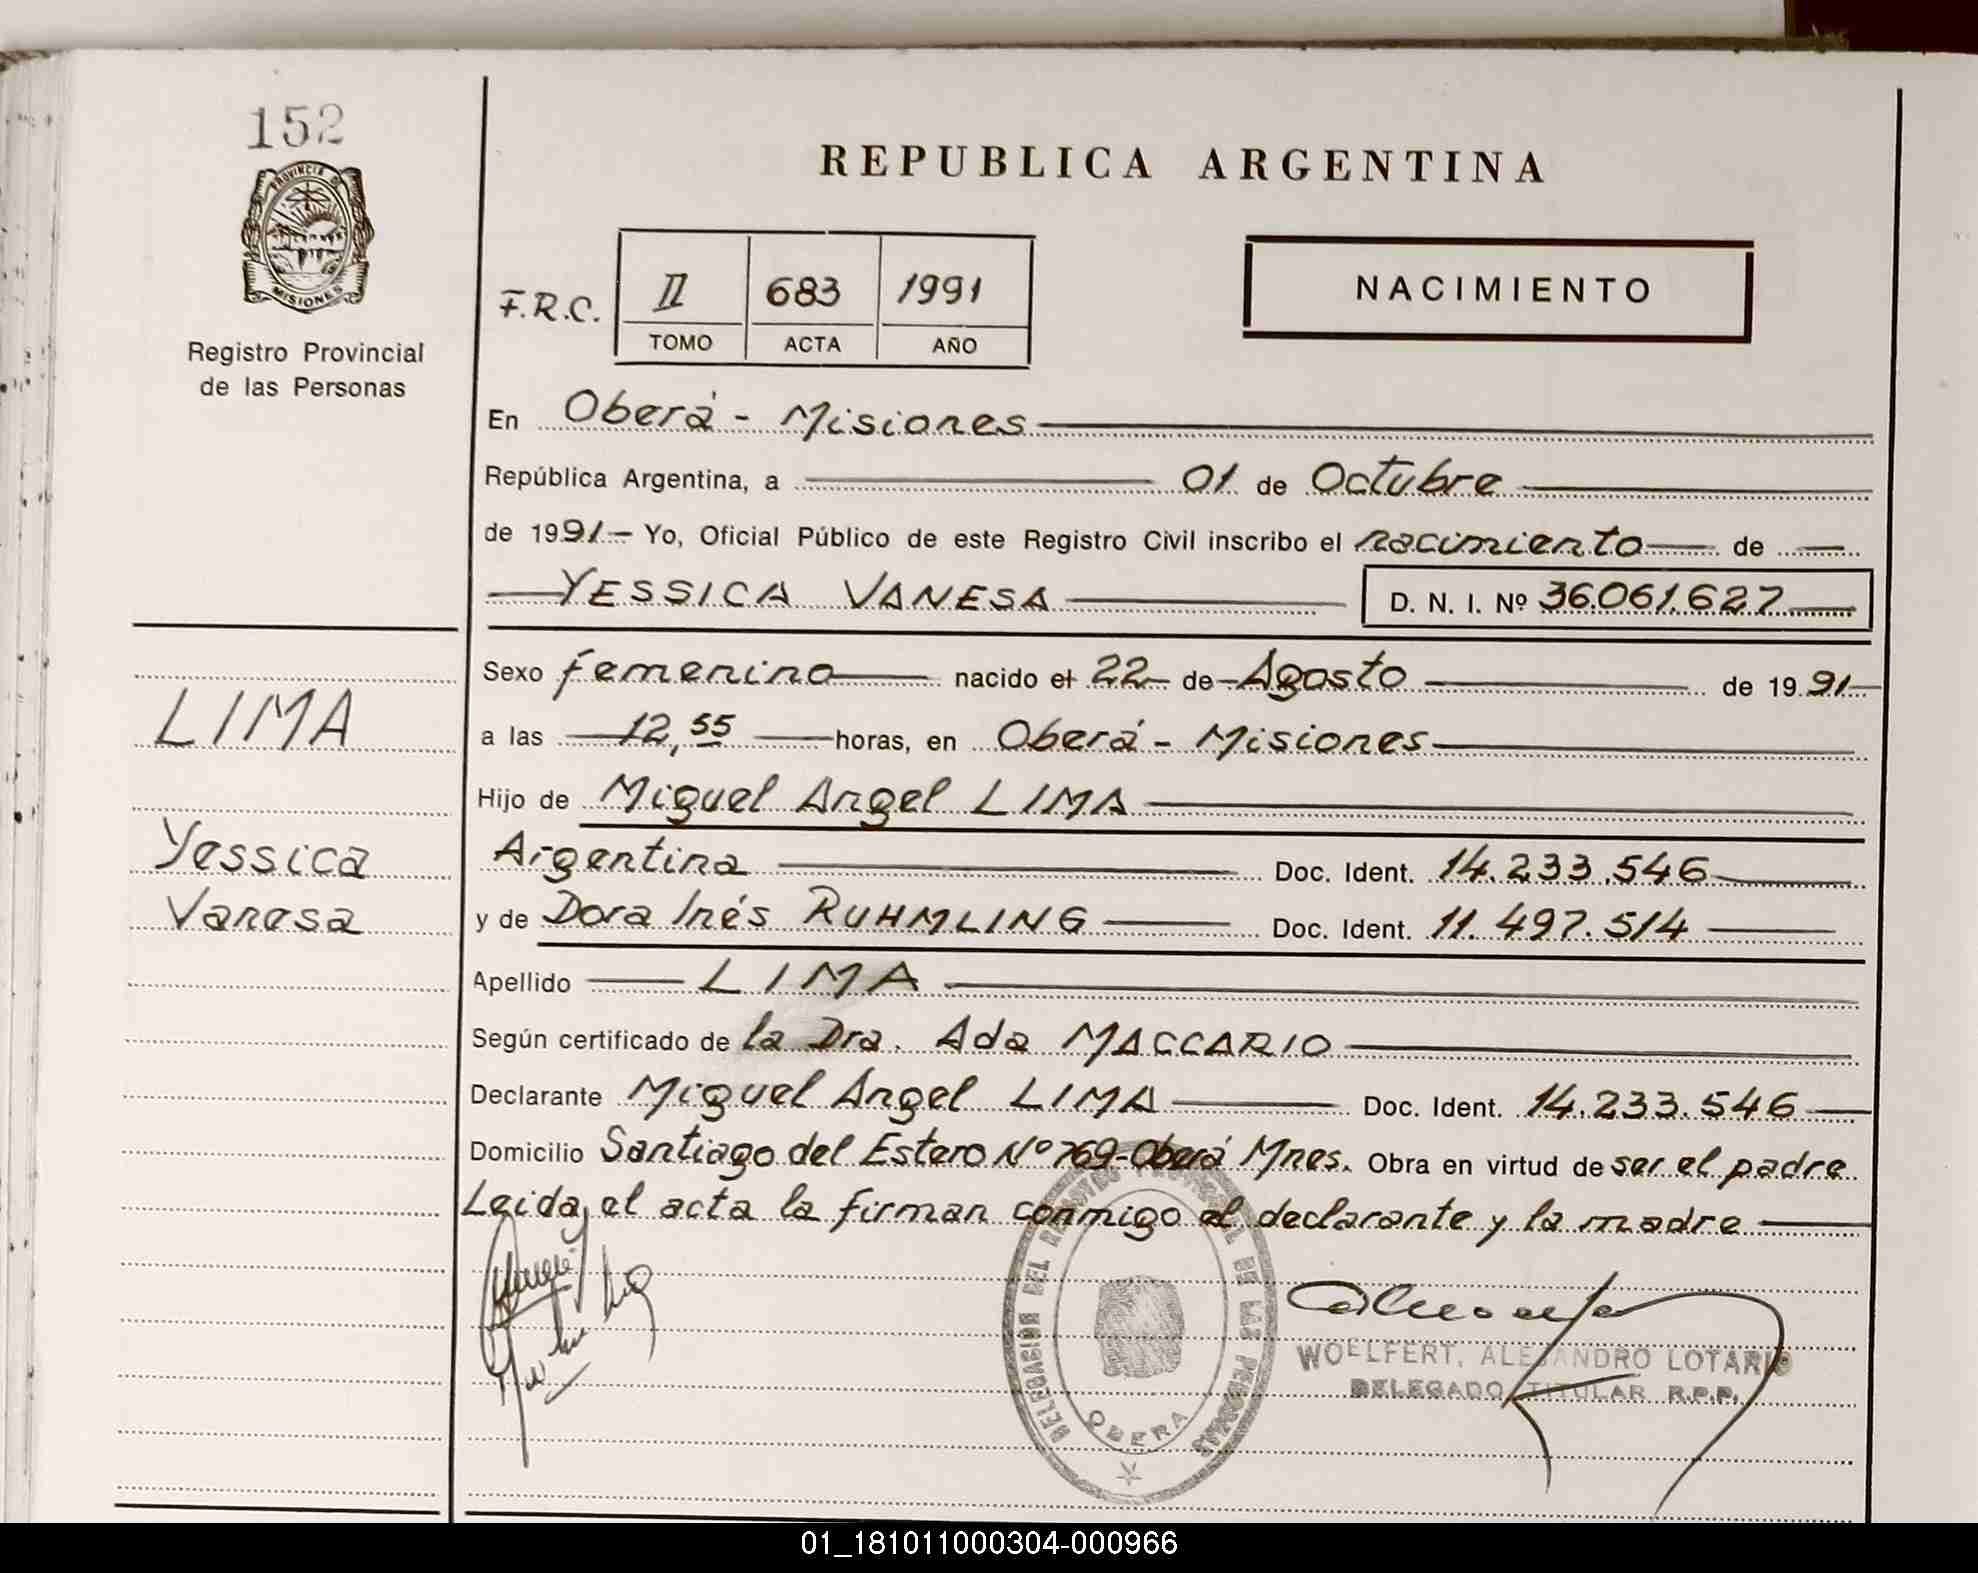 152
PROVINCIA DE
MISIONES
Registro Provincial
de las Personas
LIMA
Yessica
Vanesa
REPUBLICA ARGENTINA
F.R.C.
II 683 1991
TOMO ACTA AÑO
NACIMIENTO
En Oberá - Misiones
República Argentina, a 01 de Octubre
de 1991- Yo, Oficial Público de este Registro Civil inscribo el nacimiento de
YESSICA VANESA D. N. I. Nº 36.061.627
Sexo femenino nacido el 22 de Agosto de 1991
a las 12,55 horas, en Oberá - Misiones
Hijo de Miguel Angel LIMA
Argentina Doc. Ident. 14.233.546
y de Dora Inés RUHMLING Doc. Ident. 11.497.514
Apellido LIMA
Según certificado de la Dra. Ada MACCARIO
Declarante Miguel Angel LIMA Doc. Ident. 14.233.546
Domicilio Santiago del Estero Nº 769-Oberá Mnes. Obra en virtud de ser el padre
Leida el acta la firman conmigo el declarante y la madre
DELEGACION DEL REGISTRO PROVINCIAL DE LAS PERSONAS
OBERA
WOELFERT, ALEJANDRO LOTARIO
DELEGADO TITULAR R.P.P.
01_181011000304-000966